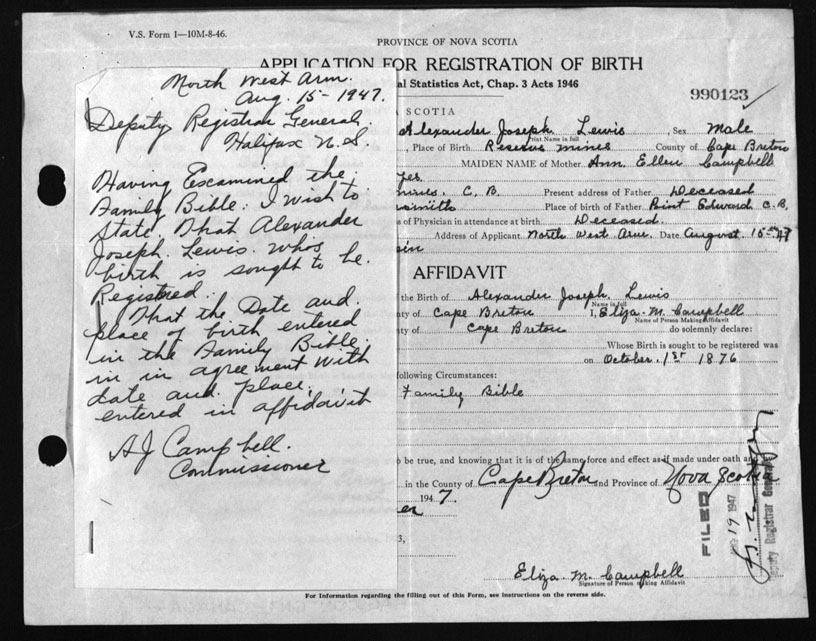 V.S. Form 1—10M-8-46.
PROVINCE OF NOVA SCOTIA
APPLICATION FOR REGISTRATION OF BIRTH
al Statistics Act, Chap. 3 Acts 1946
990123
North West Arm.
Aug. 15-1947.
Deputy Registrar General.
Halifax N.S.
Having Escamined the
Family Bible. I wish to
state. That Alexander
Joseph. Lewis. whos
birth is sought to be.
Registered.
That the Date and.
place of birth entered
in the Family Bible,
in in agreement with
date and place,
entered in affidavit
AJ Campbell.
Commissioner
SCOTIA
Alexander Joseph Lewis, Sex Male
Print Name in full
, Place of Birth Reserve mines County of Cape Breton
MAIDEN NAME of Mother Ann Ellen Campbell
C. B. Present address of Father Deceased
smith Place of birth of Father Point Edward C.B.
s of Physician in attendance at birth Deceased.
Address of Applicant North West Arm. Date August. 15 47
AFFIDAVIT
the Birth of Alexander Joseph Lewis
Name in full
ty of Cape Breton I, Eliza M. Campbell
Name of Person Making Affidavit
ty of Cape Breton do solemnly declare:
Whose Birth is sought to be registered was
on October. 1st 1876
following Circumstances:
Family Bible
to be true, and knowing that it is of the same force and effect as if made under oath
in the County of Cape Breton and Province of Nova Scotia
1947.
3,
FILED
19 1947
Deputy Registrar General
Eliza M. Campbell
Signature of Person making Affidavit
For Information regarding the filling out of this Form, see instructions on the reverse side.